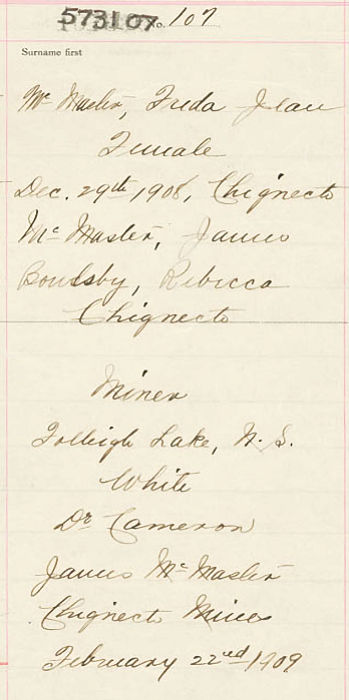 573107 No. 107
Surname first
Mc Master, Freda Jean
Female
Dec. 29th 1908, Chignecto
Mc Master, James
Boulsby, Rebecca
Chignecto
Miner
Folleigh Lake, N. S.
White
Dr Cameron
James Mc Master
Chignecto Mines
February 22nd 1909